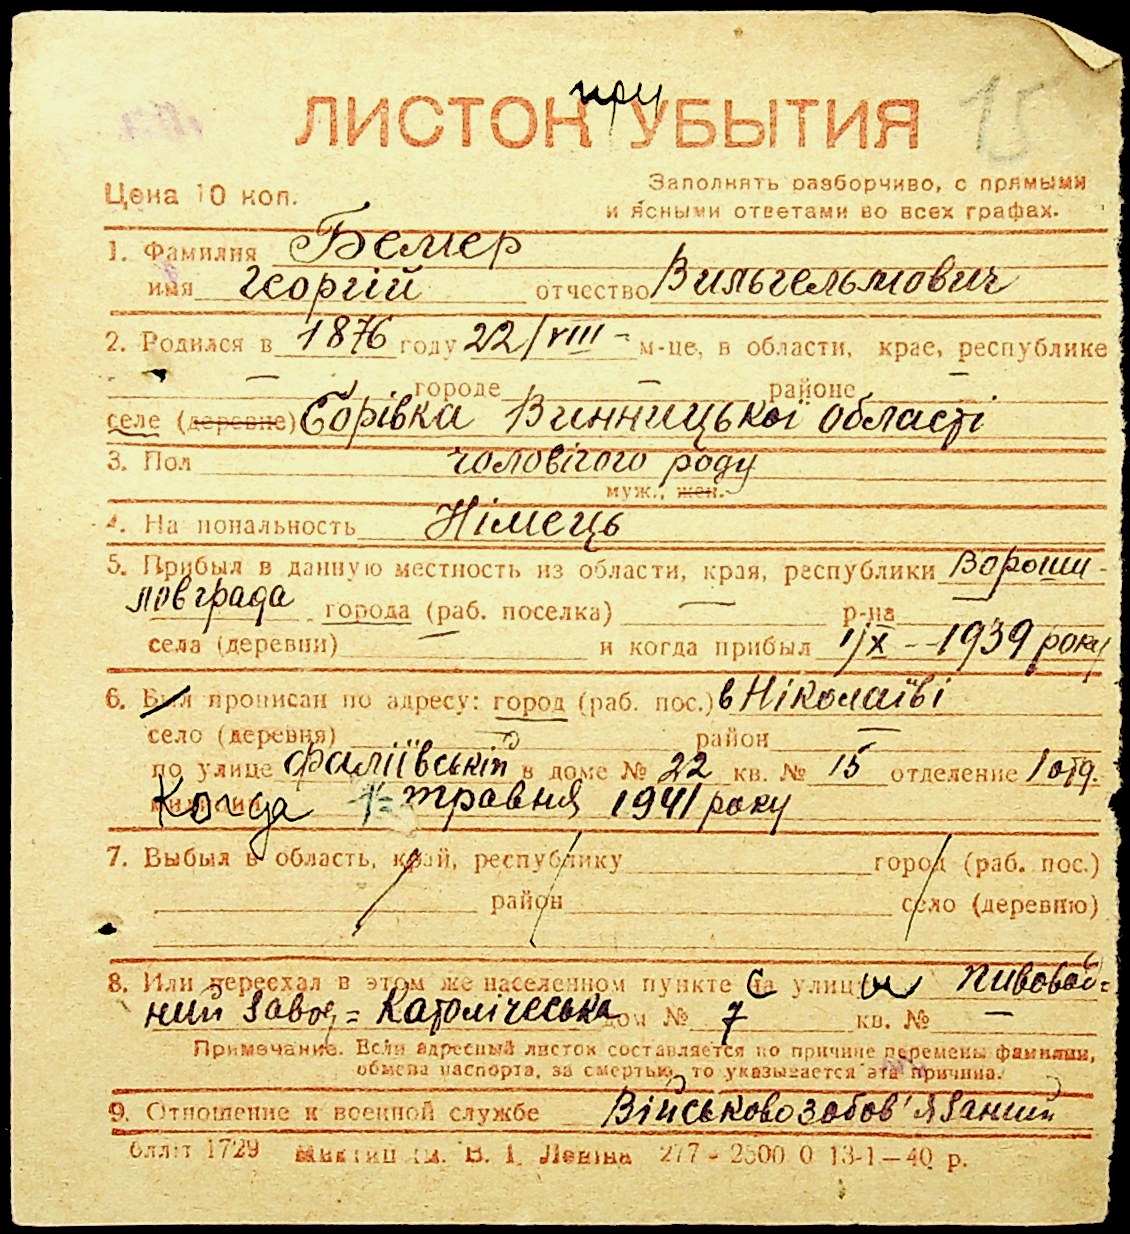 при
ЛИСТОК УБЫТИЯ 15
Цена 10 коп. Заполнять разборчиво, с прямыми
и ясными ответами во всех графах.
1. Фамилия Бемер
имя Георгій отчество Вильгельмович
2. Родился в 1876 году 22/VIII - м-це, в области, крае, республике
— городе — районе —
селе (деревне) Юрівка Винницької області
3. Пол чоловічого роду
муж., жен.
4. Национальность Німець
5. Прибыл в данную местность из области, края, республики Вороши-
ловграда города (раб. поселка) — р-на —
села (деревни) — и когда прибыл 1/X - 1939 року
6. Был прописан по адресу: город (раб. пос.) в Ніколаїві
село (деревня) — район —
по улице Фаліївській в доме № 22 кв. № 15 отделение 1 отд.
милиции Когда 1= травня 1941 року
7. Выбыл в область, край, республику город (раб. пос.)
район село (деревню)
8. Или переехал в этом же населенном пункте с улицы Пивовар=
ний завод = Католічеська дом № 7 кв. № —
Примечание. Если адресный листок составляется по причине перемены фамилии,
обмена паспорта, за смертью, то указывается эта причина.
9. Отношение к военной службе Військовозобов'язаний
бллит 1729 им. В. І. Леніна 277 - 2500 0 13-1—40 р.